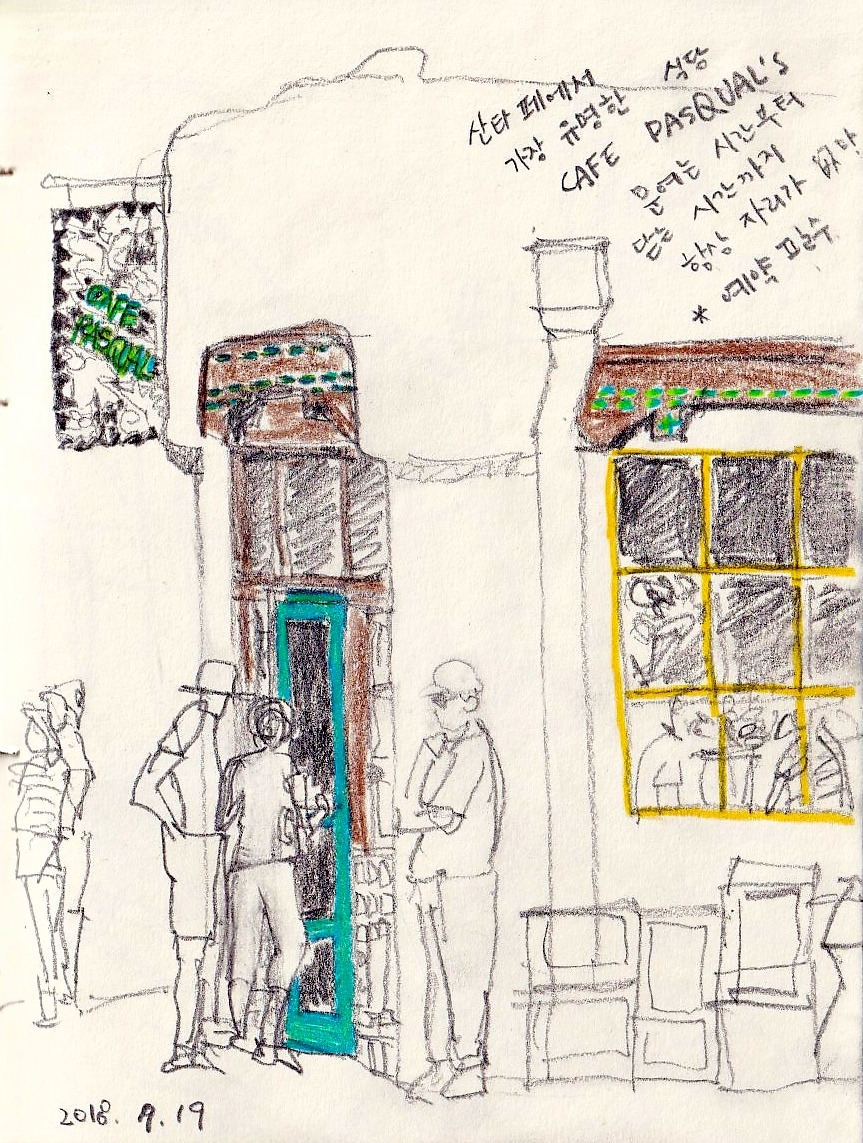 산타 페에서
가장 유명한 식당
CAFE PASQUAL'S
문여는 시간부터
닫는 시간까지
항상 자리가 없다
* 예약 필수
CAFE
PASQUAL
2018. 9. 19